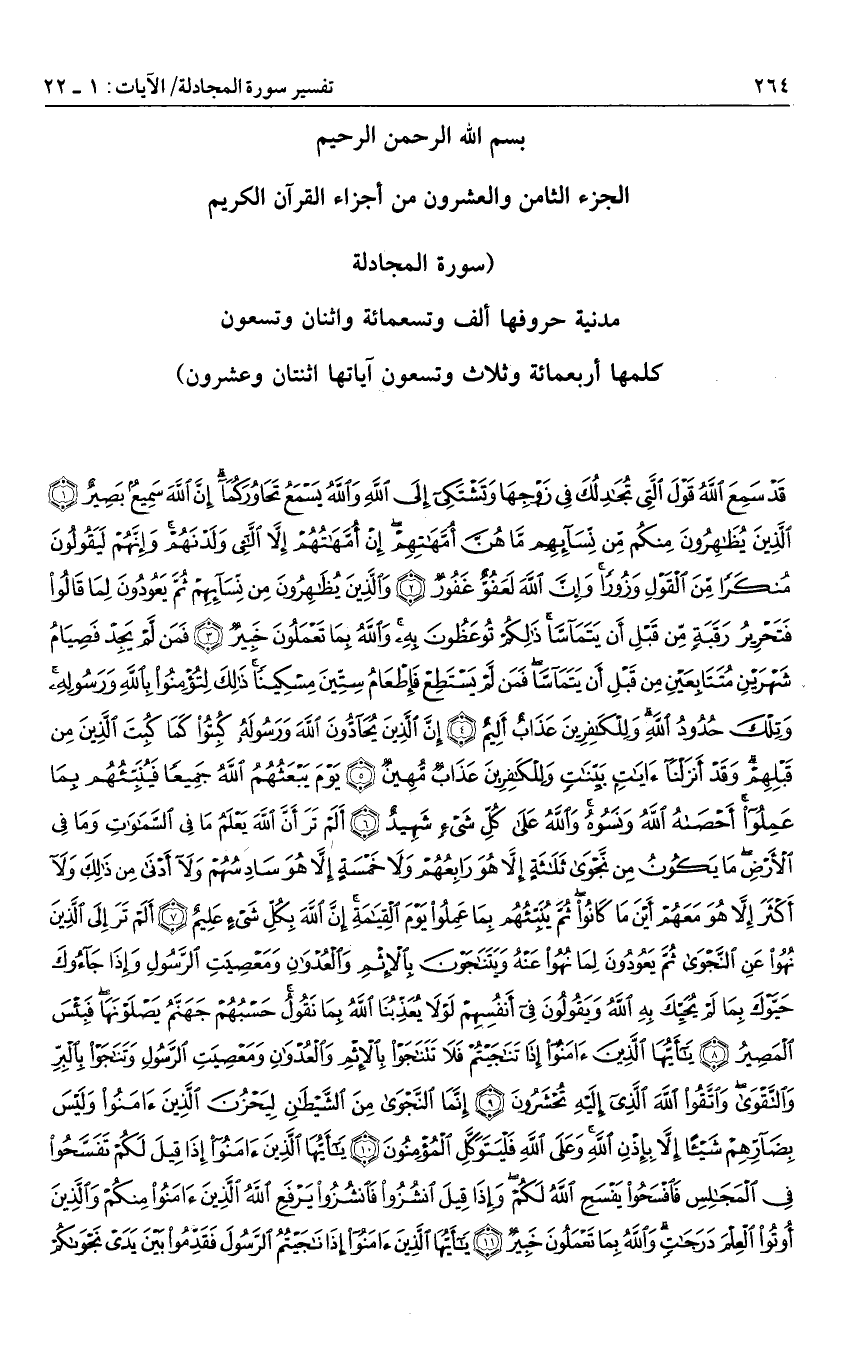 ٢٦٤ تفسير سورة المجادلة/ الآيات: ١ ـ ٢٢
بسم الله الرحمن الرحيم
الجزء الثامن والعشرون من أجزاء القرآن الكريم
(سورة المجادلة
مدنية حروفها ألف وتسعمائة واثنان وتسعون
كلمها أربعمائة وثلاث وتسعون آياتها اثنتان وعشرون)
قَدْ سَمِعَ ٱللَّهُ قَوْلَ ٱلَّتِى تُجَٰدِلُكَ فِى زَوْجِهَا وَتَشْتَكِىٓ إِلَى ٱللَّهِ وَٱللَّهُ يَسْمَعُ تَحَاوُرَكُمَآ ۚ إِنَّ ٱللَّهَ سَمِيعٌۢ بَصِيرٌ ١
ٱلَّذِينَ يُظَٰهِرُونَ مِنكُم مِّن نِّسَآئِهِم مَّا هُنَّ أُمَّهَٰتِهِمْ ۖ إِنْ أُمَّهَٰتُهُمْ إِلَّا ٱلَّٰٓـِٔى وَلَدْنَهُمْ ۚ وَإِنَّهُمْ لَيَقُولُونَ
مُنكَرًا مِّنَ ٱلْقَوْلِ وَزُورًا ۚ وَإِنَّ ٱللَّهَ لَعَفُوٌّ غَفُورٌ ٢ وَٱلَّذِينَ يُظَٰهِرُونَ مِن نِّسَآئِهِمْ ثُمَّ يَعُودُونَ لِمَا قَالُوا۟
فَتَحْرِيرُ رَقَبَةٍ مِّن قَبْلِ أَن يَتَمَآسَّا ۚ ذَٰلِكُمْ تُوعَظُونَ بِهِۦ ۚ وَٱللَّهُ بِمَا تَعْمَلُونَ خَبِيرٌ ٣ فَمَن لَّمْ يَجِدْ فَصِيَامُ
شَهْرَيْنِ مُتَتَابِعَيْنِ مِن قَبْلِ أَن يَتَمَآسَّا ۖ فَمَن لَّمْ يَسْتَطِعْ فَإِطْعَامُ سِتِّينَ مِسْكِينًا ۚ ذَٰلِكَ لِتُؤْمِنُوا۟ بِٱللَّهِ وَرَسُولِهِۦ ۚ
وَتِلْكَ حُدُودُ ٱللَّهِ ۗ وَلِلْكَٰفِرِينَ عَذَابٌ أَلِيمٌ ٤ إِنَّ ٱلَّذِينَ يُحَآدُّونَ ٱللَّهَ وَرَسُولَهُۥ كُبِتُوا۟ كَمَا كُبِتَ ٱلَّذِينَ مِن
قَبْلِهِمْ ۚ وَقَدْ أَنزَلْنَآ ءَايَٰتٍۭ بَيِّنَٰتٍ ۚ وَلِلْكَٰفِرِينَ عَذَابٌ مُّهِينٌ ٥ يَوْمَ يَبْعَثُهُمُ ٱللَّهُ جَمِيعًا فَيُنَبِّئُهُم بِمَا
عَمِلُوٓا۟ ۚ أَحْصَىٰهُ ٱللَّهُ وَنَسُوهُ ۚ وَٱللَّهُ عَلَىٰ كُلِّ شَىْءٍ شَهِيدٌ ٦ أَلَمْ تَرَ أَنَّ ٱللَّهَ يَعْلَمُ مَا فِى ٱلسَّمَٰوَٰتِ وَمَا فِى
ٱلْأَرْضِ ۖ مَا يَكُونُ مِن نَّجْوَىٰ ثَلَٰثَةٍ إِلَّا هُوَ رَابِعُهُمْ وَلَا خَمْسَةٍ إِلَّا هُوَ سَادِسُهُمْ وَلَآ أَدْنَىٰ مِن ذَٰلِكَ وَلَآ
أَكْثَرَ إِلَّا هُوَ مَعَهُمْ أَيْنَ مَا كَانُوا۟ ۖ ثُمَّ يُنَبِّئُهُم بِمَا عَمِلُوا۟ يَوْمَ ٱلْقِيَٰمَةِ ۚ إِنَّ ٱللَّهَ بِكُلِّ شَىْءٍ عَلِيمٌ ٧ أَلَمْ تَرَ إِلَى ٱلَّذِينَ
نُهُوا۟ عَنِ ٱلنَّجْوَىٰ ثُمَّ يَعُودُونَ لِمَا نُهُوا۟ عَنْهُ وَيَتَنَٰجَوْنَ بِٱلْإِثْمِ وَٱلْعُدْوَٰنِ وَمَعْصِيَتِ ٱلرَّسُولِ وَإِذَا جَآءُوكَ
حَيَّوْكَ بِمَا لَمْ يُحَيِّكَ بِهِ ٱللَّهُ وَيَقُولُونَ فِىٓ أَنفُسِهِمْ لَوْلَا يُعَذِّبُنَا ٱللَّهُ بِمَا نَقُولُ ۚ حَسْبُهُمْ جَهَنَّمُ يَصْلَوْنَهَا ۖ فَبِئْسَ
ٱلْمَصِيرُ ٨ يَٰٓأَيُّهَا ٱلَّذِينَ ءَامَنُوٓا۟ إِذَا تَنَٰجَيْتُمْ فَلَا تَتَنَٰجَوْا۟ بِٱلْإِثْمِ وَٱلْعُدْوَٰنِ وَمَعْصِيَتِ ٱلرَّسُولِ وَتَنَٰجَوْا۟ بِٱلْبِرِّ
وَٱلتَّقْوَىٰ ۖ وَٱتَّقُوا۟ ٱللَّهَ ٱلَّذِىٓ إِلَيْهِ تُحْشَرُونَ ٩ إِنَّمَا ٱلنَّجْوَىٰ مِنَ ٱلشَّيْطَٰنِ لِيَحْزُنَ ٱلَّذِينَ ءَامَنُوا۟ وَلَيْسَ
بِضَآرِّهِمْ شَيْـًٔا إِلَّا بِإِذْنِ ٱللَّهِ ۚ وَعَلَى ٱللَّهِ فَلْيَتَوَكَّلِ ٱلْمُؤْمِنُونَ ١٠ يَٰٓأَيُّهَا ٱلَّذِينَ ءَامَنُوٓا۟ إِذَا قِيلَ لَكُمْ تَفَسَّحُوا۟
فِى ٱلْمَجَٰلِسِ فَٱفْسَحُوا۟ يَفْسَحِ ٱللَّهُ لَكُمْ ۖ وَإِذَا قِيلَ ٱنشُزُوا۟ فَٱنشُزُوا۟ يَرْفَعِ ٱللَّهُ ٱلَّذِينَ ءَامَنُوا۟ مِنكُمْ وَٱلَّذِينَ
أُوتُوا۟ ٱلْعِلْمَ دَرَجَٰتٍ ۚ وَٱللَّهُ بِمَا تَعْمَلُونَ خَبِيرٌ ١١ يَٰٓأَيُّهَا ٱلَّذِينَ ءَامَنُوٓا۟ إِذَا نَٰجَيْتُمُ ٱلرَّسُولَ فَقَدِّمُوا۟ بَيْنَ يَدَىْ نَجْوَىٰكُمْ